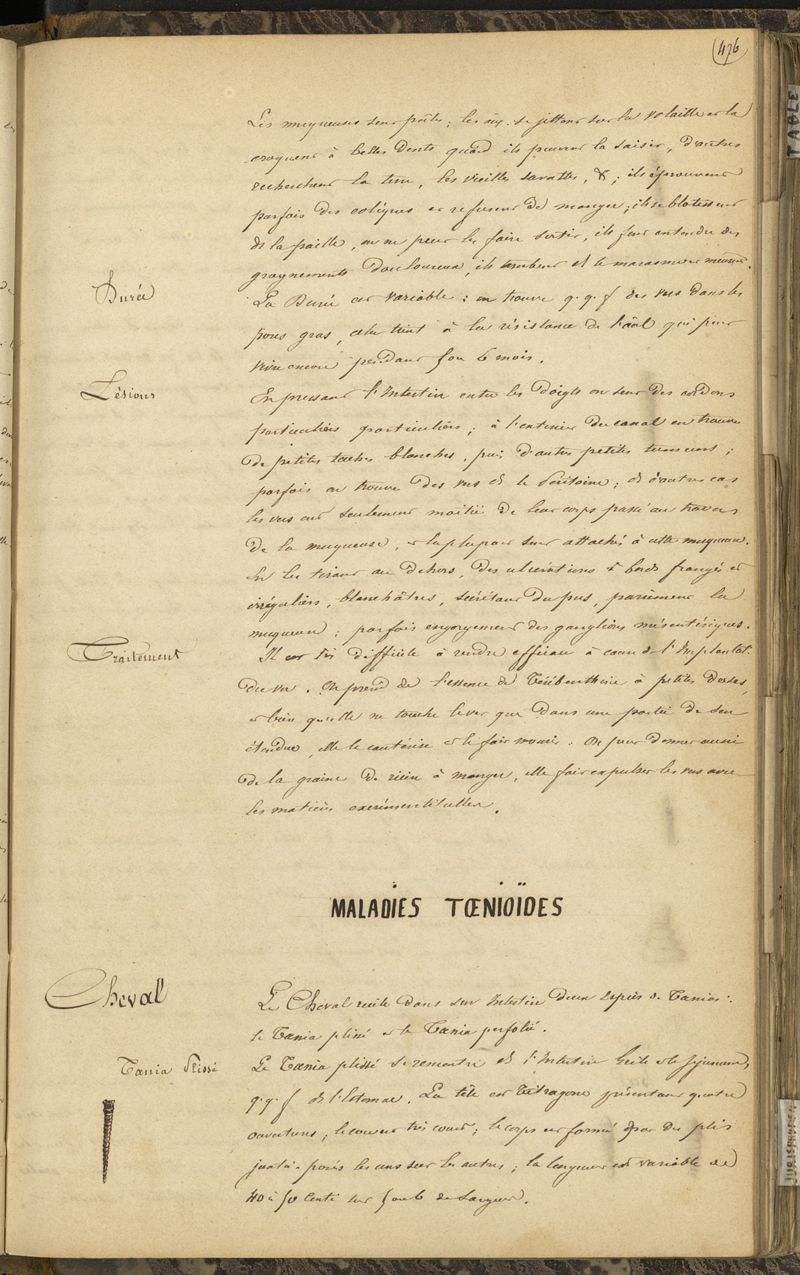 476
TABLE
Les muqueuses sont pâles ; les suj. se jettent sur la volaille et la
croquent à belles dents quand ils peuvent la saisir, d'autres
recherchent la terre, les vieilles savattes, & ; ils éprouvent
parfois des coliques et refusent de manger ; ils se blotissent
ds la paille, on ne peut les faire sortir, ils font entendre des
grognements douloureux, ils tombent ds le marasme et meurent.
Durée
La Durée est variable : on trouve q.q.f des vers dans les
porcs gras, cela tient à la résistance de l'aal qui peut
vivre encore pendant 5 ou 6 mois.
Lésions
En pressant l'Intestin entre les doigts on sent des cordons
particuliers particuliers ; à l'extérieur du canal on trouve
de petites taches blanches, puis d'autres petites tumeurs ;
parfois on trouve des vers ds le Péritoine ; ds d'autres cas
les vers ont seulement moitié de leur corps passé au travers
de la muqueuse, et la plupart sont attachés à cette muqueuse.
En les tirant au dehors, des ulcérations à bords frangés et
irréguliers, blanchâtres, sécrétant du pus, parsèment la
muqueuse ; parfois engorgement des ganglions mésentériques.
Traitement
Il est très difficile à rendre efficace à cause de l'Implantat.
du ver. On prend de l'essence de Térébenthine à petites doses,
et bien qu'elle ne touche le ver que dans une partie de son
étendue, elle le cautérise et le fait mourir. On peut donner aussi
de la graine de ricin à manger, elle fait expulser les vers avec
les matières excrémentitielles.
MALADIES TŒNIOÏDES
Cheval
Le Cheval recèle dans son Intestin deux espèces de Tænias :
le Tænia plissé et le Tænia perfolié.
Tænia Plissé
Le Tænia plissé se rencontre ds l'Intestin Grêle et le Jejunum,
q.q.f ds l'Estomac. La tête est Tétragone présentant quatre
ouvertures ; le cou est très court ; le corps est formé par des plis
juxta-posés les uns sur les autres ; la longueur est variable de
40 à 50 centi sur 5 ou 6 de Largeur.
JURISPRUDENCE